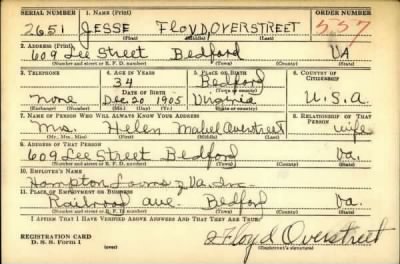 SERIAL NUMBER 1. NAME (Print) ORDER NUMBER
2651 JESSE FLOYD OVERSTREET 557
(First) (Middle) (Last)
2. ADDRESS (Print)
609 Lee Street Bedford VA
(Number and street or R. F. D. number) (Town) (County) (State)
3. TELEPHONE 4. AGE IN YEARS 5. PLACE OF BIRTH 6. COUNTRY OF CITIZENSHIP
34 Bedford
DATE OF BIRTH (Town or county)
none Dec 20 1905 Virginia U.S.A.
(Exchange) (Number) (Mo.) (Day) (Yr.) (State or country)
7. NAME OF PERSON WHO WILL ALWAYS KNOW YOUR ADDRESS 8. RELATIONSHIP OF THAT PERSON
Mrs. Helen Mabel Overstreet wife
(Mr., Mrs., Miss) (First) (Middle) (Last)
9. ADDRESS OF THAT PERSON
609 Lee Street Bedford Va.
(Number and street or R. F. D. number) (Town) (County) (State)
10. EMPLOYER'S NAME
Hampton Looms of Va. Inc.
11. PLACE OF EMPLOYMENT OR BUSINESS
Railroad ave. Bedford Va.
(Number and street or R. F. D. number) (Town) (County) (State)
I AFFIRM THAT I HAVE VERIFIED ABOVE ANSWERS AND THAT THEY ARE TRUE.
REGISTRATION CARD
D. S. S. Form 1
J Floyd Overstreet
(Registrant's signature)